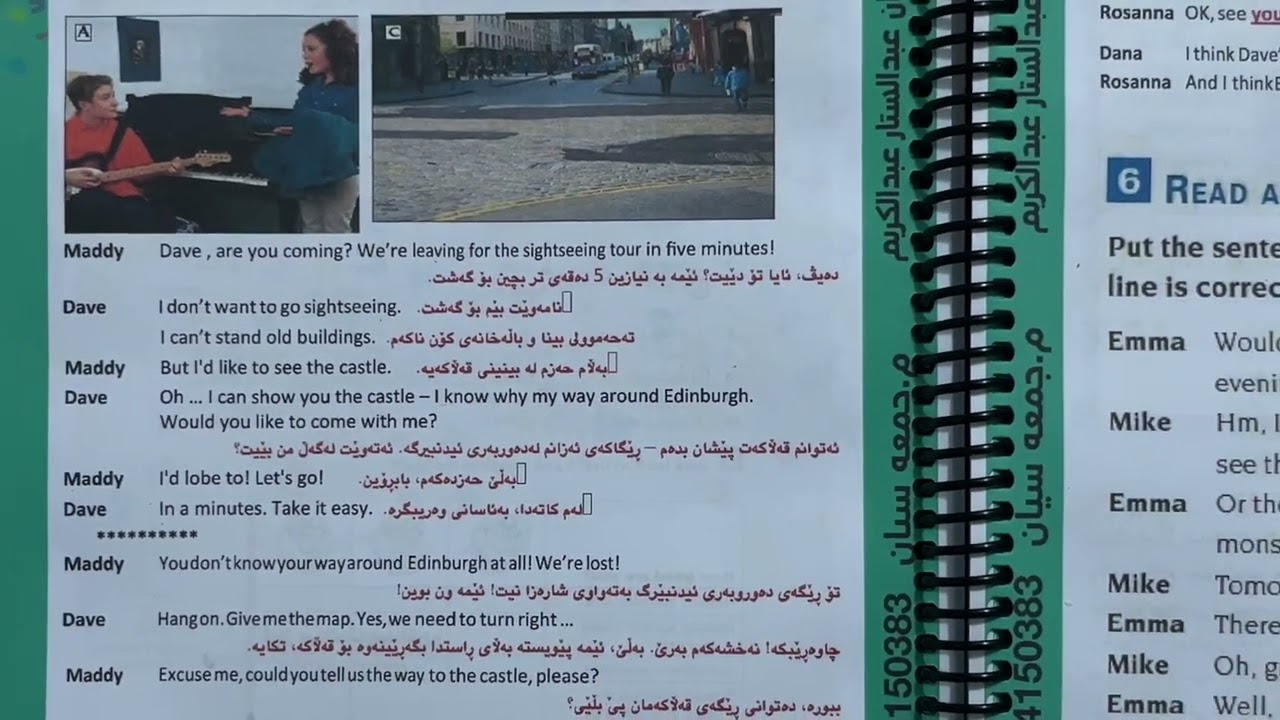 A
C
Maddy Dave , are you coming? We're leaving for the sightseeing tour in five minutes!
دەیڤ، ئایا تۆ دێیت؟ ئێمە بە نیازین 5 دەقەی تر بچین بۆ گەشت.
Dave I don't want to go sightseeing. نامەوێت بێم بۆ گەشت.
I can't stand old buildings. تەحەموولی بینا و باڵەخانەی کۆن ناکەم.
Maddy But I'd like to see the castle. بەڵام حەزم لە بینینی قەڵاکەیە.
Dave Oh ... I can show you the castle – I know why my way around Edinburgh.
Would you like to come with me?
ئەتوانم قەڵاکەت پێشان بدەم – ڕێگاکەی ئەزانم لەدەوربەری ئیدنبیرگە. ئەتەوێت لەگەڵ من بێیت؟
Maddy I'd lobe to! Let's go! بەڵێ حەزدەکەم، بابڕۆین.
Dave In a minutes. Take it easy. لەم کاتەدا، بەئاسانی وەریبگرە.
**********
Maddy You don't know your way around Edinburgh at all! We're lost!
تۆ ڕێگەی دەوروبەری ئیدنبێرگ بەتەواوی شارەزا نیت! ئێمە ون بوین!
Dave Hang on. Give me the map. Yes, we need to turn right ...
چاوەڕێبکە! نەخشەکەم بەرێ. بەڵێ، ئێمە پێویستە بەلای ڕاستدا بگەڕێینەوە بۆ قەڵاکە، تکایە.
Maddy Excuse me, could you tell us the way to the castle, please?
ببورە، دەتوانی ڕێگەی قەڵاکەمان پێ بڵێی؟
م.جمعه سيان عبدالستار عبدالكريم
150383
م.جمعه سيان عبدالستار عبدالكريم
4150383
Rosanna OK, see you
Dana I think Dave'
Rosanna And I think
6 READ A
Put the sente
line is correc
Emma Would
eveni
Mike Hm, I
see th
Emma Or the
mons
Mike Tomo
Emma There
Mike Oh, g
Emma Well,